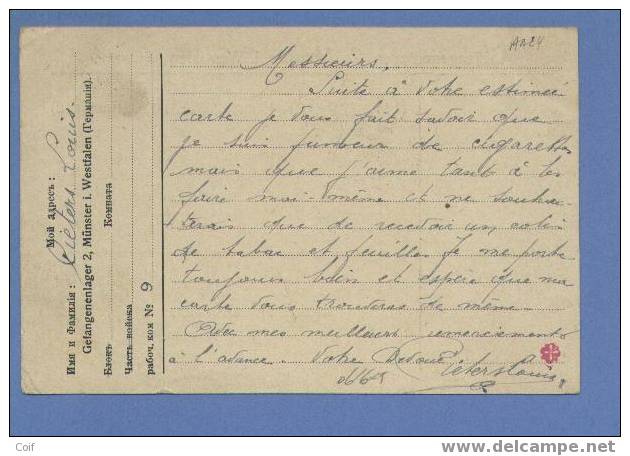 AA24
Messieurs,
Suite à votre estimée
carte je vous fait savoir que
je suis fumeur de cigarettes
mais que j'aime tant à les
faire moi-même et ne souhai-
terais que de recevoir un colis
de tabac et feuilles je me porte
toujours bien et espère que ma
carte vous trouveras de même.
mes meilleurs remerciements
à l'avance. Votre Dévoué
Pieters Louis
Мой адресъ:
Имя и Фамилія: Pieters Louis.
Gefangenenlager 2, Münster i. Westfalen (Германія).
Блокъ Комната
Часть войска
рабоч. ком № 9
Coif
www.delcampe.net